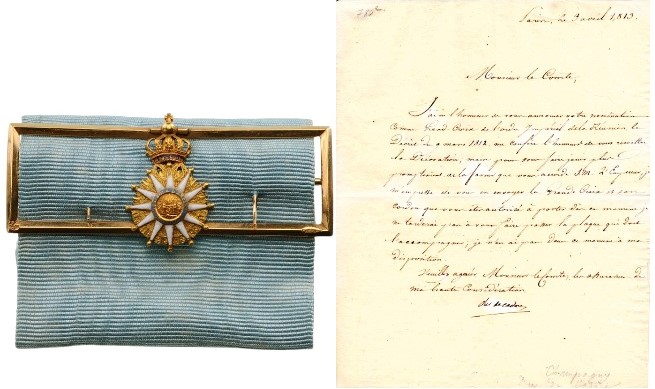 Paris, le 3 avril 1813.
Monsieur le Comte,
J'ai l'honneur de vous annoncer votre nomination
comme Grand Croix de l'ordre Impérial de la Réunion le
Décret du 9 mars 1812, me confère l'honneur de vous remettre
la Décoration, mais pour vous faire jouir plus
promptement de la faveur que vous accorde S.M. L'Empereur, je
m'empresse de vous en envoyer la Grande Croix et son
Cordon que vous êtes autorisé à porter dès ce moment, je
ne tarderai pas à vous faire passer la plaque qui doit
l'accompagner, je n'en ai pas dans ce moment à ma
disposition
Veuillez agréer Monsieur le Comte, les assurances de
ma haute Considération
Duc de Cadore
Champagny